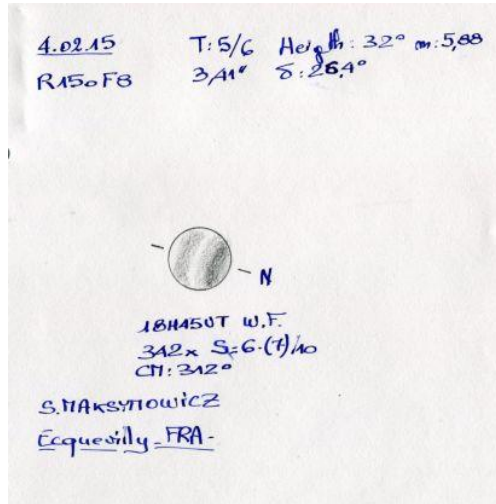 4.02.15 T: 5/6 Heigth: 32° m: 5,88
R150F8 3,41" δ: 26,4°
N
18H45UT W.F.
342x S=6-(7)/10
CM: 312°
S.MAKSYMOWICZ
Ecquevilly-FRA-